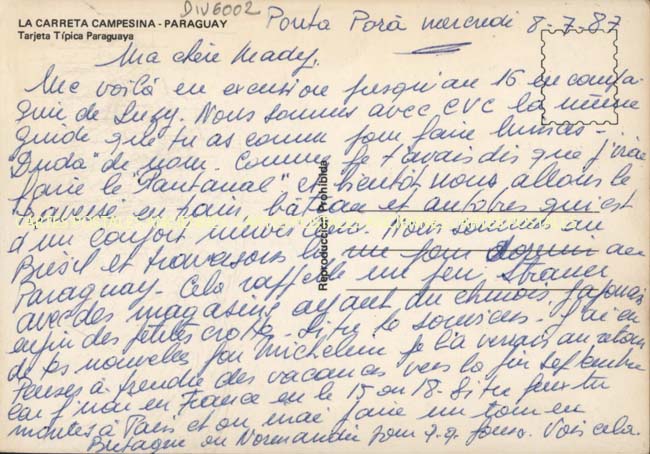 DIV6002
LA CARRETA CAMPESINA - PARAGUAY
Tarjeta Típica Paraguaya
Ponta Porã mercredi 8-7-87
Ma chère Mady.
Me voilà en excursion jusqu'au 16 en compa-
gnie de Suzy. Nous sommes avec CVC la même
guide que tu as connu pour faire
"Duda" de nom. Comme je t'avais dis que j'irai
faire le "Pantanal" et bientôt nous allons le
traverser en train, bâteau et autocar qui est
d'un confort merveilleux. Nous sommes au
Brésil et traversons la rue pour au
Paraguay. Cela rappelle un peu
avec des magasins ayant du chinois, japonais
enfin des petites Si tu te souviens - J'ai eu
de tes nouvelles par Michelin je l'a verrais au retour
Penses à prendre des vacances vers la fin septembre
car j'irai en France en le 15 ou 18. Si tu peux tu
montes à Paris et on irai faire un tour en
Bretagne ou Normandie pour 7-9 jours. Vois cela.
Reproducción Prohibida